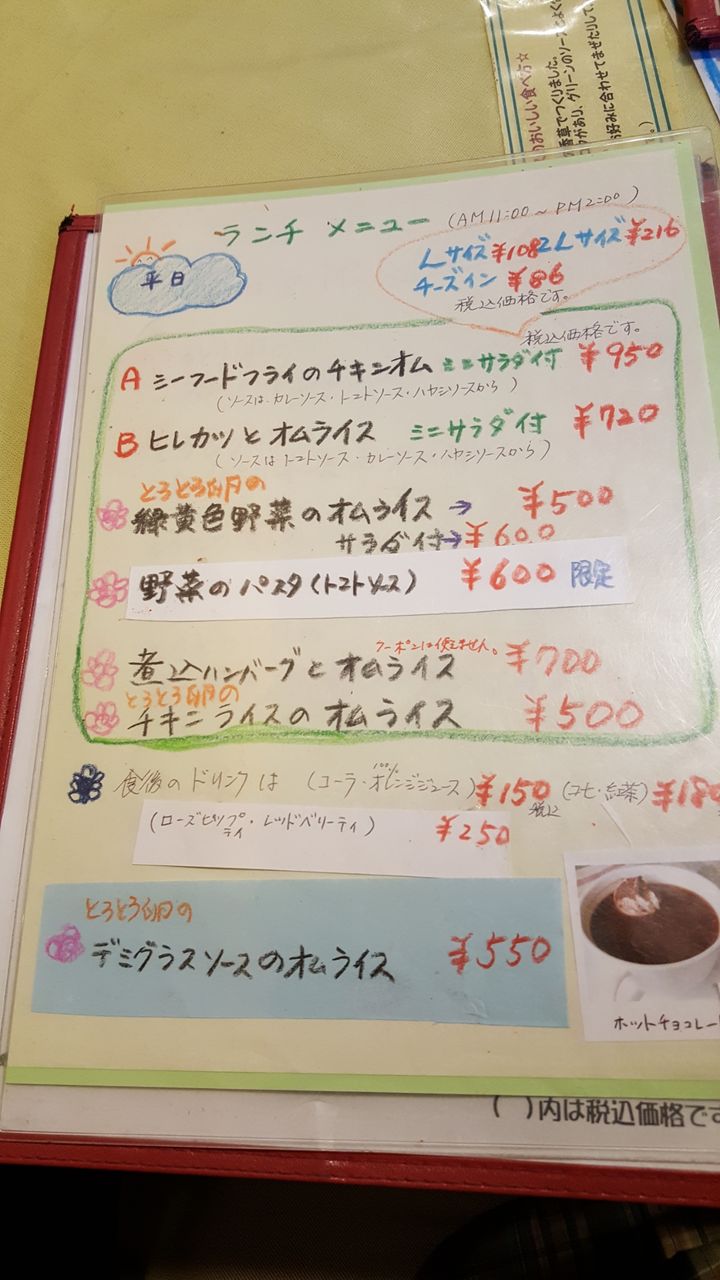 のおいしい食べ方☆
ランチ メニュー (AM11:00～PM2:00)
平日
Lサイズ ¥108 2Lサイズ ¥216
チーズイン ¥86
税込価格です。
税込価格です。
A シーフードフライのチキンオム ミニサラダ付 ¥950
(ソースは、カレーソース・トマトソース・ハヤシソースから)
B ヒレカツとオムライス ミニサラダ付 ¥720
(ソースはトマトソース・カレーソース・ハヤシソースから)
とろとろ卵の
緑黄色野菜のオムライス → ¥500
サラダ付→ ¥600
野菜のパスタ(トマトソース) ¥600 限定
クーポンは使えません。
煮込ハンバーグとオムライス ¥700
とろとろ卵の
チキンライスのオムライス ¥500
食後のドリンクは (コーラ・100%オレンジジュース) ¥150 (コーヒ・紅茶) ¥180
税込
(ローズヒップティ・レッドベリーティ) ¥250
とろとろ卵の
デミグラスソースのオムライス ¥550
ホットチョコレー
( )内は税込価格です